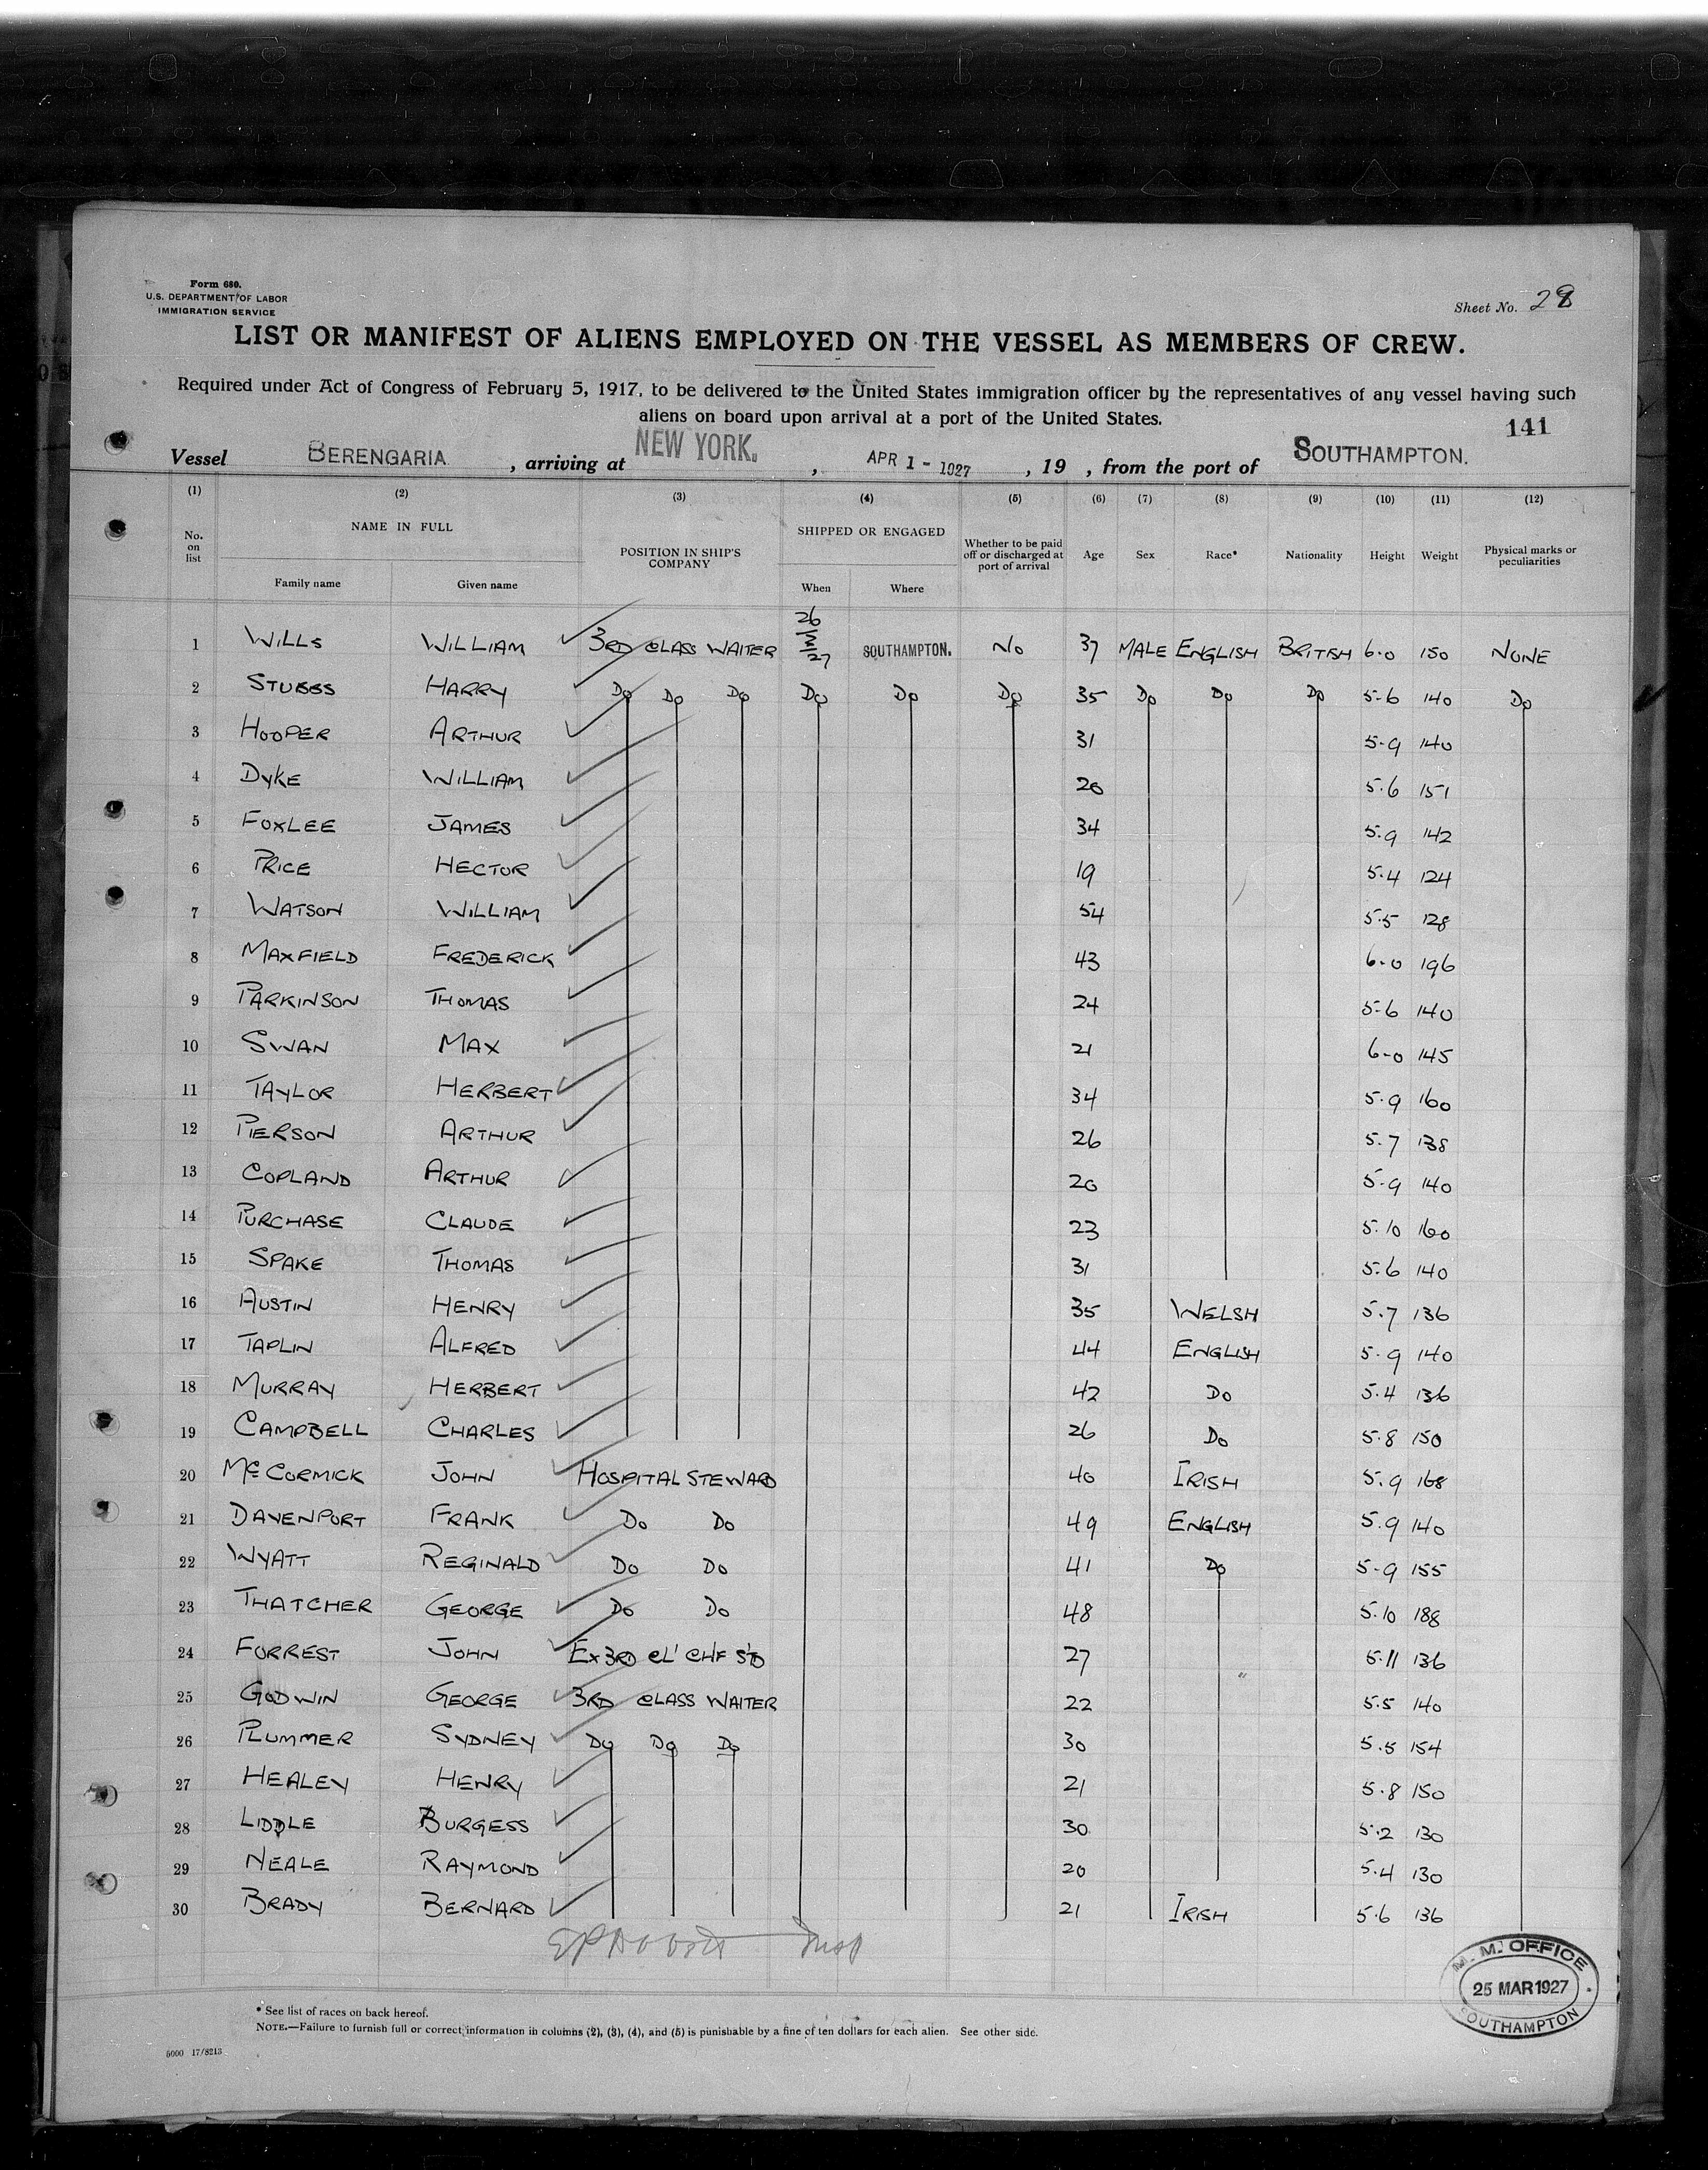 Form 680.
U.S. DEPARTMENT OF LABOR
IMMIGRATION SERVICE
Sheet No. 28
LIST OR MANIFEST OF ALIENS EMPLOYED ON THE VESSEL AS MEMBERS OF CREW.
Required under Act of Congress of February 5, 1917, to be delivered to the United States immigration officer by the representatives of any vessel having such
aliens on board upon arrival at a port of the United States.
141
Vessel BERENGARIA, arriving at NEW YORK., APR 1 - 1927, 19 , from the port of SOUTHAMPTON.
(1) (2) (3) (4) (5) (6) (7) (8) (9) (10) (11) (12)
No. on list NAME IN FULL Family name Given name POSITION IN SHIP'S COMPANY SHIPPED OR ENGAGED When Where Whether to be paid off or discharged at port of arrival Age Sex Race* Nationality Height Weight Physical marks or peculiarities
1 WILLS WILLIAM 3RD CLASS WAITER 26/3/27 SOUTHAMPTON. No 37 MALE ENGLISH BRITISH 6-0 150 NONE
2 STUBBS HARRY Do Do Do Do Do Do 35 Do Do Do 5-6 140 Do
3 HOOPER ARTHUR 31 5-9 140
4 DYKE WILLIAM 20 5.6 151
5 FOXLEE JAMES 34 5.9 142
6 PRICE HECTOR 19 5.4 124
7 WATSON WILLIAM 54 5.5 128
8 MAXFIELD FREDERICK 43 6-0 196
9 PARKINSON THOMAS 24 5-6 140
10 SWAN MAX 21 6-0 145
11 TAYLOR HERBERT 34 5.9 160
12 PIERSON ARTHUR 26 5.7 138
13 COPLAND ARTHUR 20 5-9 140
14 PURCHASE CLAUDE 23 5.10 160
15 SPAKE THOMAS 31 5.6 140
16 AUSTIN HENRY 35 WELSH 5.7 136
17 TAPLIN ALFRED 44 ENGLISH 5.9 140
18 MURRAY HERBERT 42 Do 5.4 136
19 CAMPBELL CHARLES 26 Do 5.8 150
20 McCORMICK JOHN HOSPITAL STEWARD 40 IRISH 5.9 168
21 DAVENPORT FRANK Do Do 49 ENGLISH 5.9 140
22 WYATT REGINALD Do Do 41 Do 5-9 155
23 THATCHER GEORGE Do Do 48 5.10 188
24 FORREST JOHN Ex 3RD CL' CHF STD 27 5.11 136
25 GODWIN GEORGE 3RD CLASS WAITER 22 5.5 140
26 PLUMMER SYDNEY Do Do Do 30 5.5 154
27 HEALEY HENRY 21 5.8 150
28 LIDDLE BURGESS 30 5.2 130
29 NEALE RAYMOND 20 5.4 130
30 BRADY BERNARD 21 IRISH 5.6 136
Insp
M. M. OFFICE
25 MAR 1927
SOUTHAMPTON
* See list of races on back hereof.
NOTE.—Failure to furnish full or correct information in columns (2), (3), (4), and (5) is punishable by a fine of ten dollars for each alien. See other side.
5000 17/8213